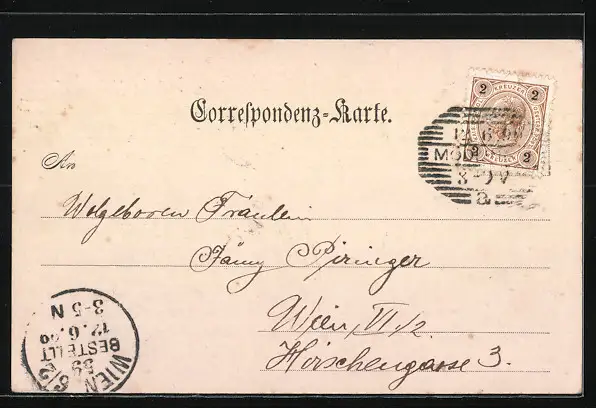 Correspondenz-Karte.
2 KREUZER 2
2 2
12 6 00
MÖDL
8 V
a
An
Wolgeboren Fräulein
Fanny Piringer
Wien, VI/2
Hirschengasse 3.
WIEN 6/2
59
BESTELLT
12.6.00
3-5 N